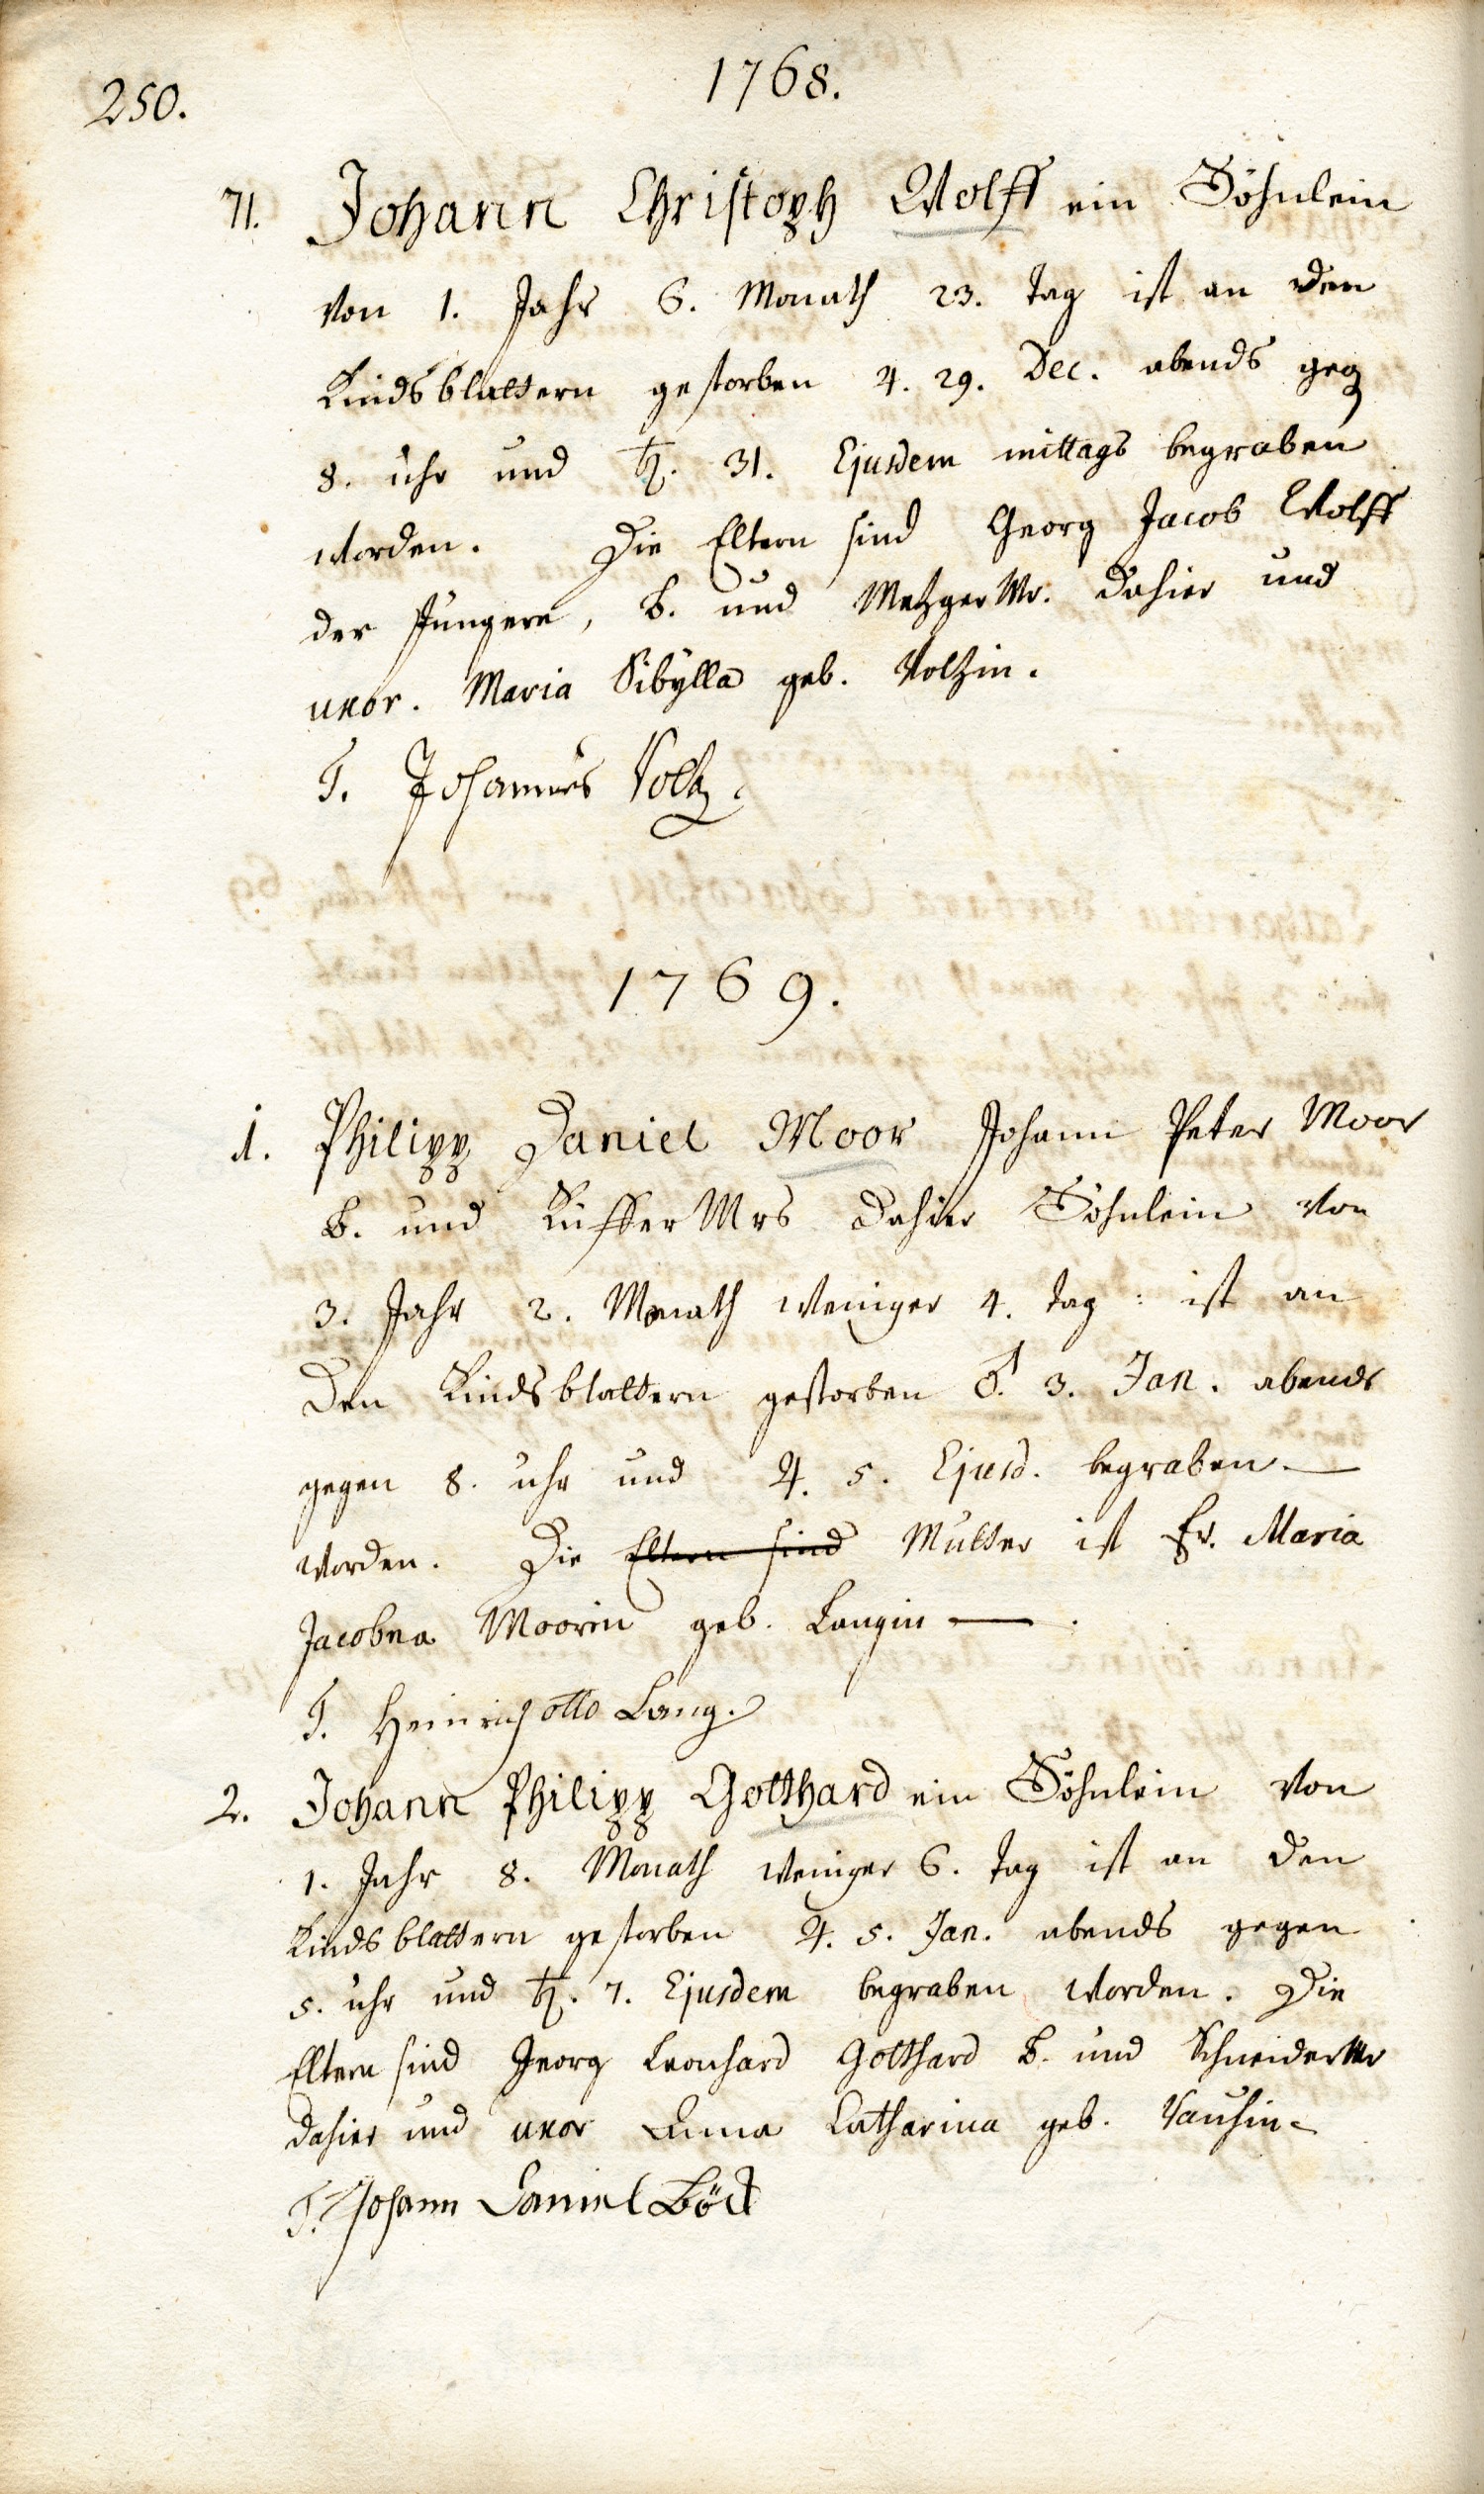 250.
1768.
71. Johann Christoph Wolff ein Söhnlein
von 1. Jahr 6. Monath 23. tag ist an den
Kindsblattern gestorben ♃. 29. Dec. abends geg
8. uhr und ♄. 31. Ejusdem mittags begraben
worden. Die Eltern sind Georg Jacob Wolff
der Jüngere, B. und Metzger Mr. dahier und
uxor. Maria Sibÿlla geb. Voltzin.
T. Johannes Voltz.
1769.
1. Philipp Daniel Moor Johann Peter Moor
B. und Küffer Mrs dahier Söhnlein von
3. Jahr 2. Monath weniger 4. tag: ist an
den Kindsblattern gestorben ♂. 3. Jan. abends
gegen 8. uhr und ♃. 5. Ejusd. begraben
worden. Die Eltern sind Mutter ist Fr. Maria
Jacobea Moorin geb. Langin
T. Heinrich otto Lang.
2. Johann Philipp Gotthard ein Söhnlein von
1. Jahr 8. Monath weniger 6. tag ist an den
Kindsblattern gestorben ♃. 5. Jan. abends gegen
5. uhr und ♄. 7. Ejusdem begraben worden. Die
Eltern sind Georg Leonhard Gotthard B. und Schneider Mr
dahier und uxor Anna Catharina geb.
T. Johann Daniel Böck